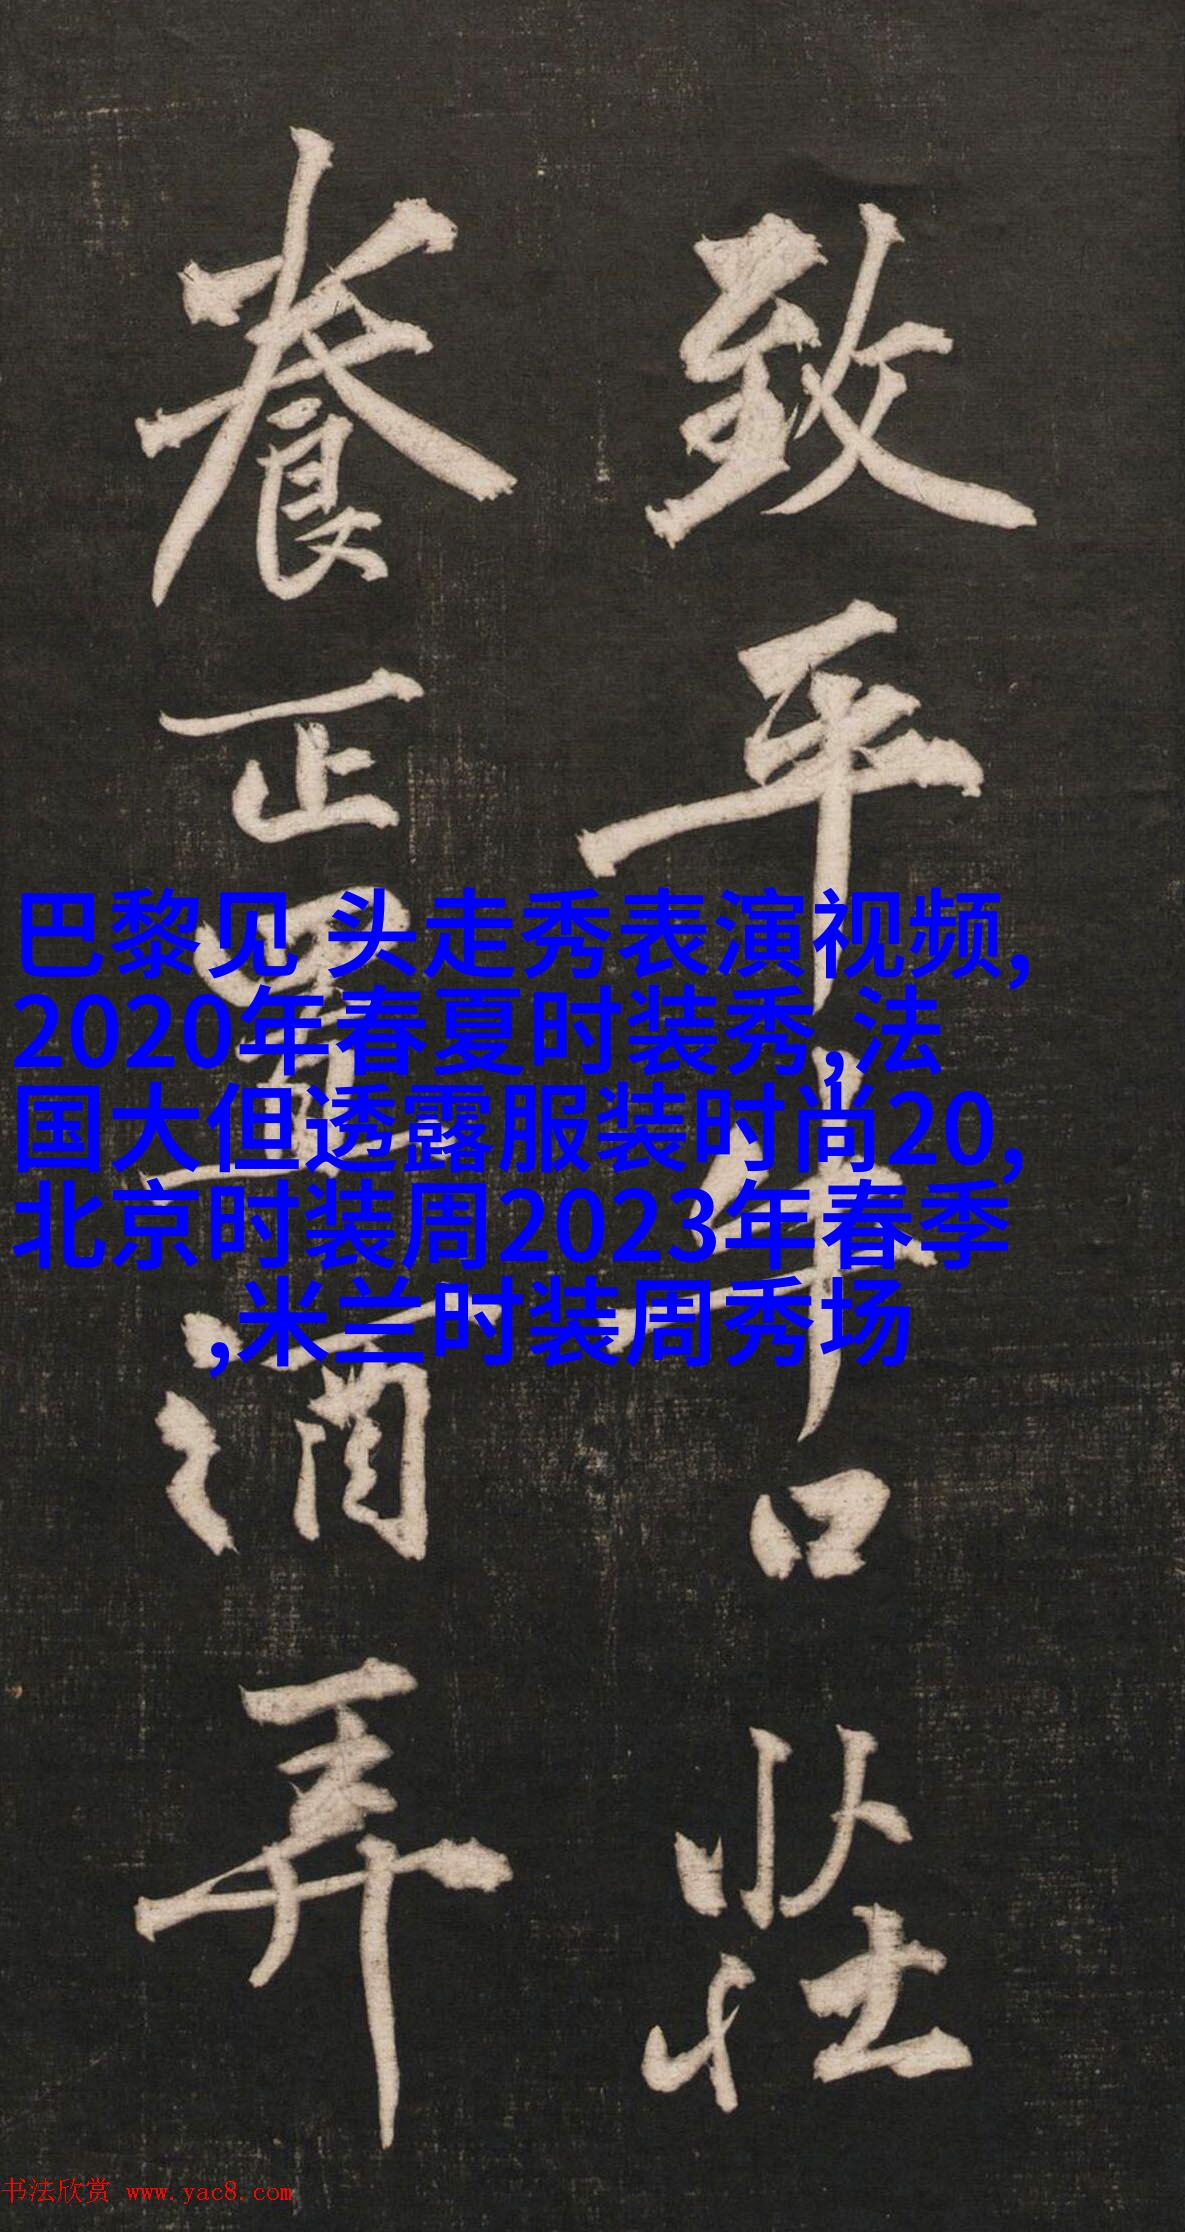 致平牛口莊
養正置酒弄
巴黎见 头走秀表演视频,
2020年春夏时装秀,法
国大但透露服装时尚20,
北京时装周2023年春季
,米兰时装周秀场
书法欣赏 www.yac8.com